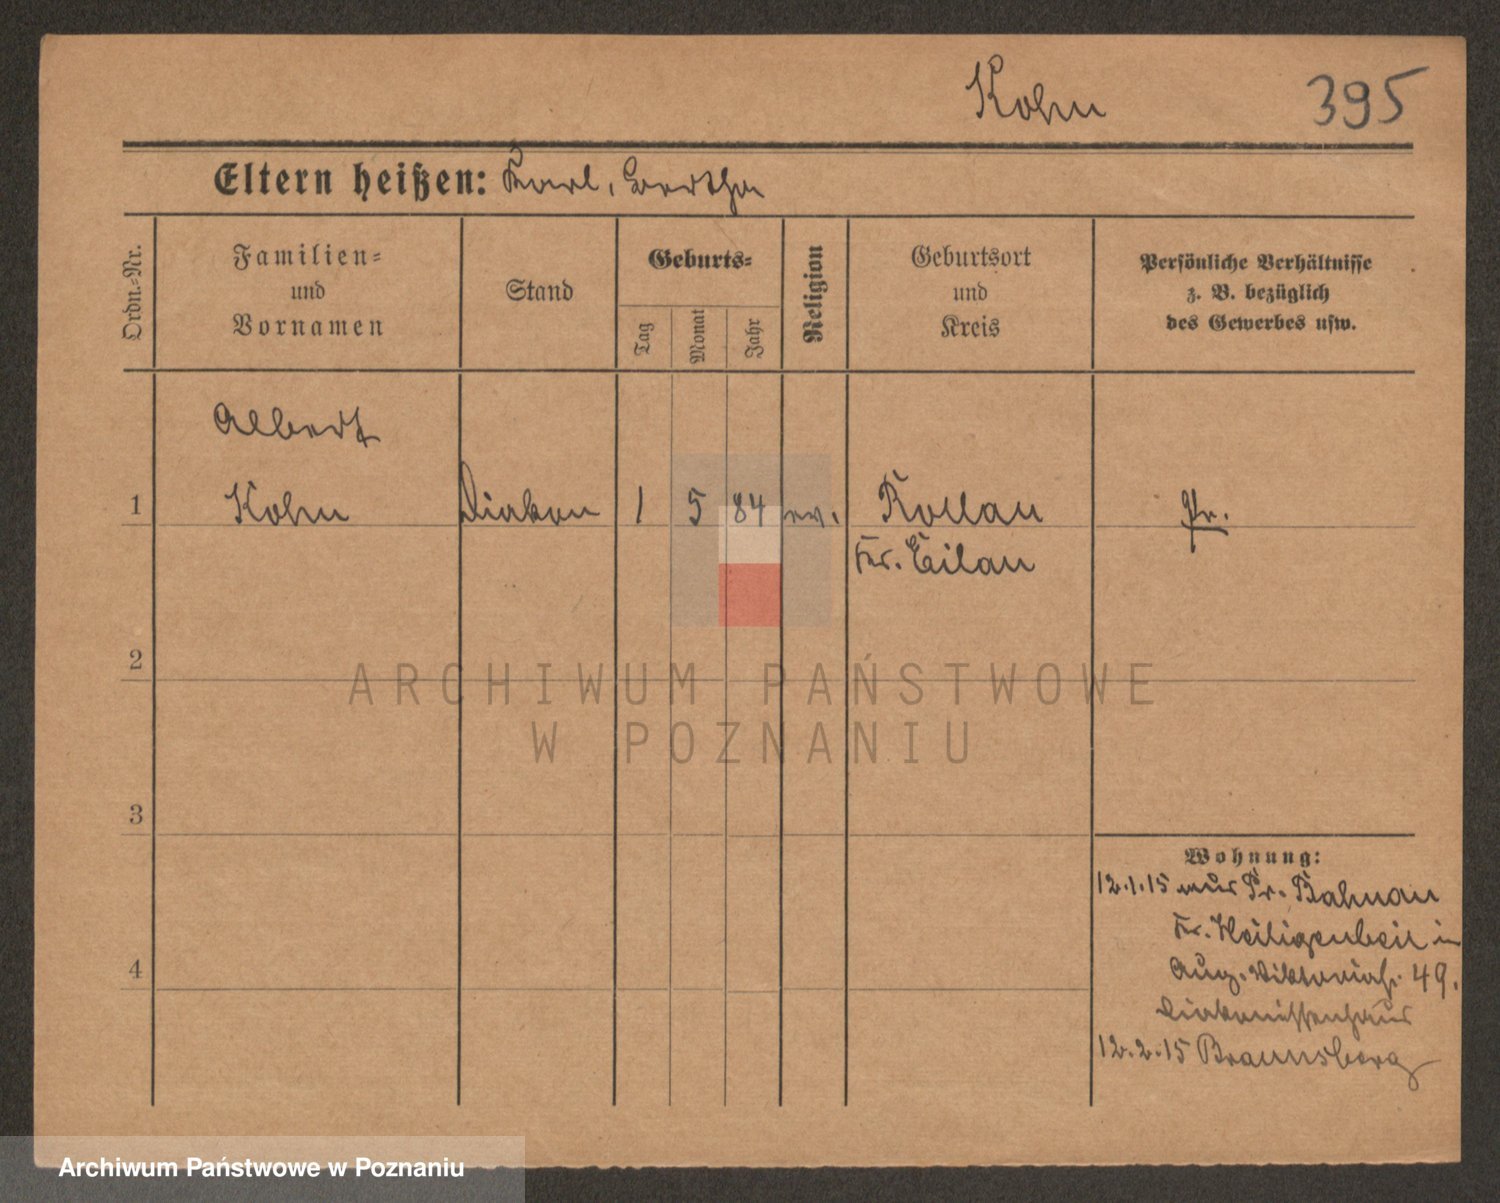 Kohn 395
Eltern heißen: Karl, Bertha
Ordn.-Nr.
Familien-
und
Vornamen
Stand
Geburts-
Tag
Monat
Jahr
Religion
Geburtsort
und
Kreis
Persönliche Verhältnisse
z. B. bezüglich
des Gewerbes usw.
Albert
1 Kohn Diakon 1 5 84 ev. Rollau Pr.
Kr. Eilau
2
ARCHIWUM PAŃSTWOWE
W POZNANIU
3
Wohnung:
12.1.15 aus Pr. Bahnau
Kr. Heiligenbeil in
Aug. Viktoriastr. 49.
Diakonissenhaus
4
12.2.15 Braunsberg
Archiwum Państwowe w Poznaniu